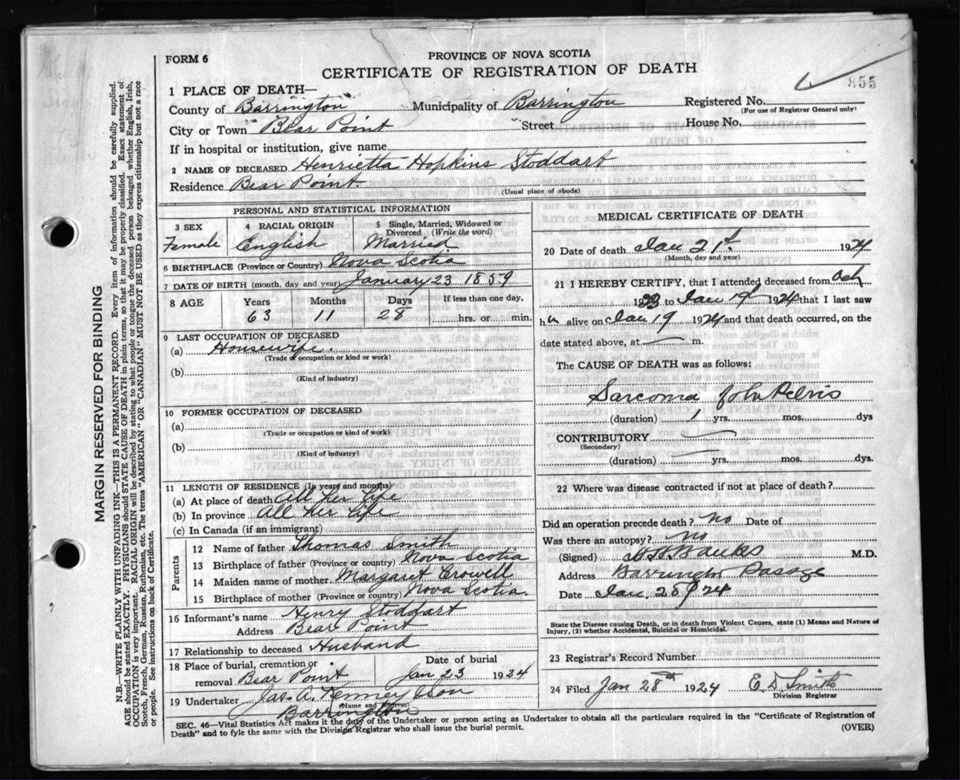 FORM 6
PROVINCE OF NOVA SCOTIA
CERTIFICATE OF REGISTRATION OF DEATH
855
1 PLACE OF DEATH—
County of Barrington Municipality of Barrington Registered No.
(For use of Registrar General only)
City or Town Bear Point Street House No.
If in hospital or institution, give name
2 NAME OF DECEASED Henrietta Hopkins Stoddart
Residence Bear Point.
(Usual place of abode)
PERSONAL AND STATISTICAL INFORMATION
3 SEX 4 RACIAL ORIGIN 5 Single, Married, Widowed or Divorced (Write the word)
Female English Married
6 BIRTHPLACE (Province or Country) Nova Scotia
7 DATE OF BIRTH (month, day and year) January 23 1859
8 AGE Years Months Days If less than one day,
63 11 28 hrs. or min.
9 LAST OCCUPATION OF DECEASED
(a) Housewife.
(Trade or occupation or kind of work)
(b)
(Kind of industry)
10 FORMER OCCUPATION OF DECEASED
(a)
(Trade or occupation or kind of work)
(b)
(Kind of industry)
11 LENGTH OF RESIDENCE (In years and months)
(a) At place of death All her life
(b) In province All her life
(c) In Canada (if an immigrant)
Parents
12 Name of father Thomas Smith
13 Birthplace of father (Province or Country) Nova Scotia
14 Maiden name of mother Margaret Crowell
15 Birthplace of mother (Province or Country) Nova Scotia.
16 Informant's name Henry Stoddart
Address Bear Point
17 Relationship to deceased Husband
18 Place of burial, cremation or removal Bear Point Date of burial Jan 23 1924
19 Undertaker Jas. A. Kenney & Son
(Name and Address)
Barrington
MEDICAL CERTIFICATE OF DEATH
20 Date of death Jan 21st 1924
(Month, day and year)
21 I HEREBY CERTIFY, that I attended deceased from
1923 to Jan 19 1924 that I last saw
h alive on Jan 19 1924 and that death occurred, on the
date stated above, at m.
The CAUSE OF DEATH was as follows:
Sarcoma of the Pelvis
(duration) 1 yrs. mos. dys
CONTRIBUTORY
(Secondary)
(duration) yrs. mos. dys.
22 Where was disease contracted if not at place of death?
Did an operation precede death? no Date of
Was there an autopsy? no
(Signed) Banks M.D.
Address Barrington Passage
Date Jan. 28 1924
State the Disease causing Death, or in death from Violent Causes, state (1) Means and Nature of Injury, (2) whether Accidental, Suicidal or Homicidal.
23 Registrar's Record Number
24 Filed Jan 28th 1924 E. D. Smith
Division Registrar
SEC. 46—Vital Statistics Act makes it the duty of the Undertaker or person acting as Undertaker to obtain all the particulars required in the "Certificate of Registration of
Death" and to fyle the same with the Division Registrar who shall issue the burial permit.
(OVER)
MARGIN RESERVED FOR BINDING
N.B.—WRITE PLAINLY WITH UNFADING INK—THIS IS A PERMANENT RECORD. Every item of information should be carefully supplied.
AGE should be stated EXACTLY. PHYSICIANS should STATE CAUSE OF DEATH in plain terms, so that it may be properly classified. Exact statement of
OCCUPATION is very important. RACIAL ORIGIN will be described by stating to what people or tongue the deceased person belonged whether English, Irish,
Scotch, French, German, Russian, Ruthenian, etc. The terms "AMERICAN" OR "CANADIAN" MUST NOT BE USED as they express citizenship but not a race
or people. See instructions on back of Certificate.